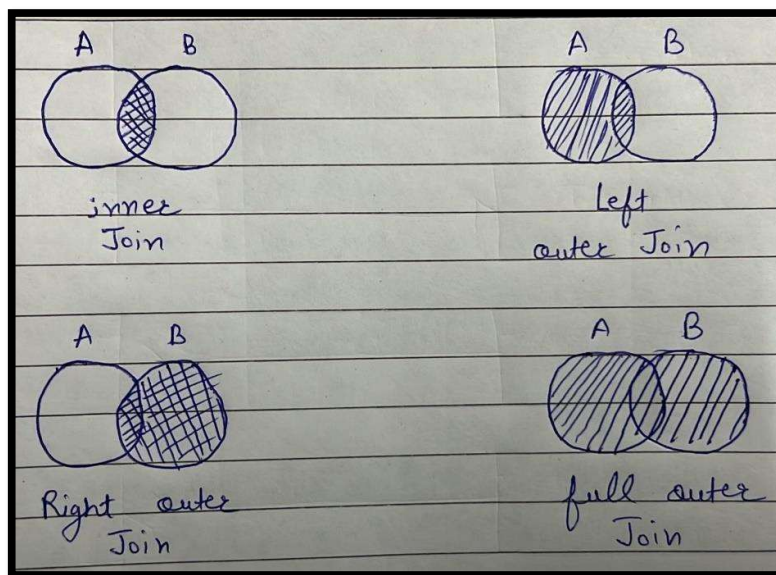 A B
inner
Join
A B
Left
outer Join
A B
Right outer
Join
A B
full outer
Join